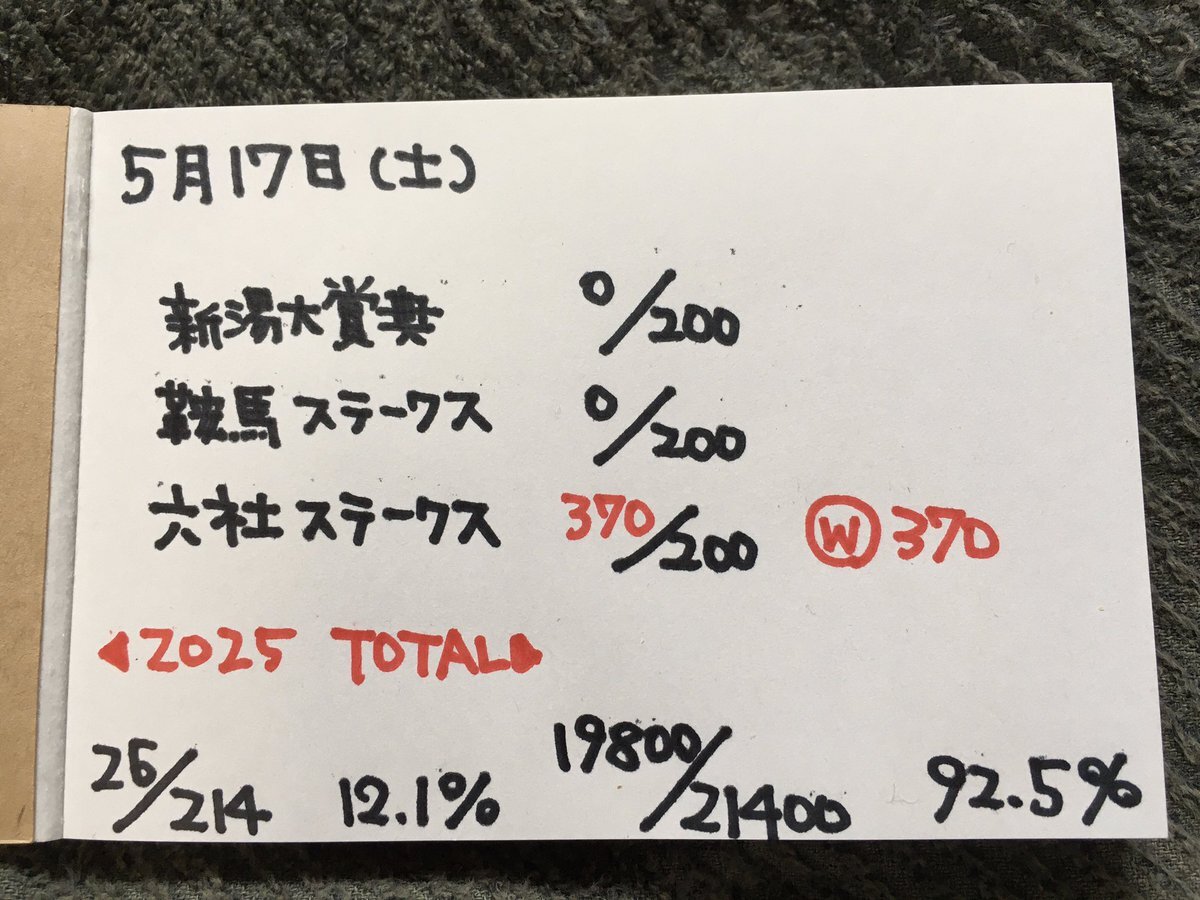 5月17日(土)
新潟大賞典 0/200
鞍馬ステークス 0/200
六社ステークス 370/200 Ⓦ370
◀2025 TOTAL▶
26/214 12.1% 19800/21400 92.5%